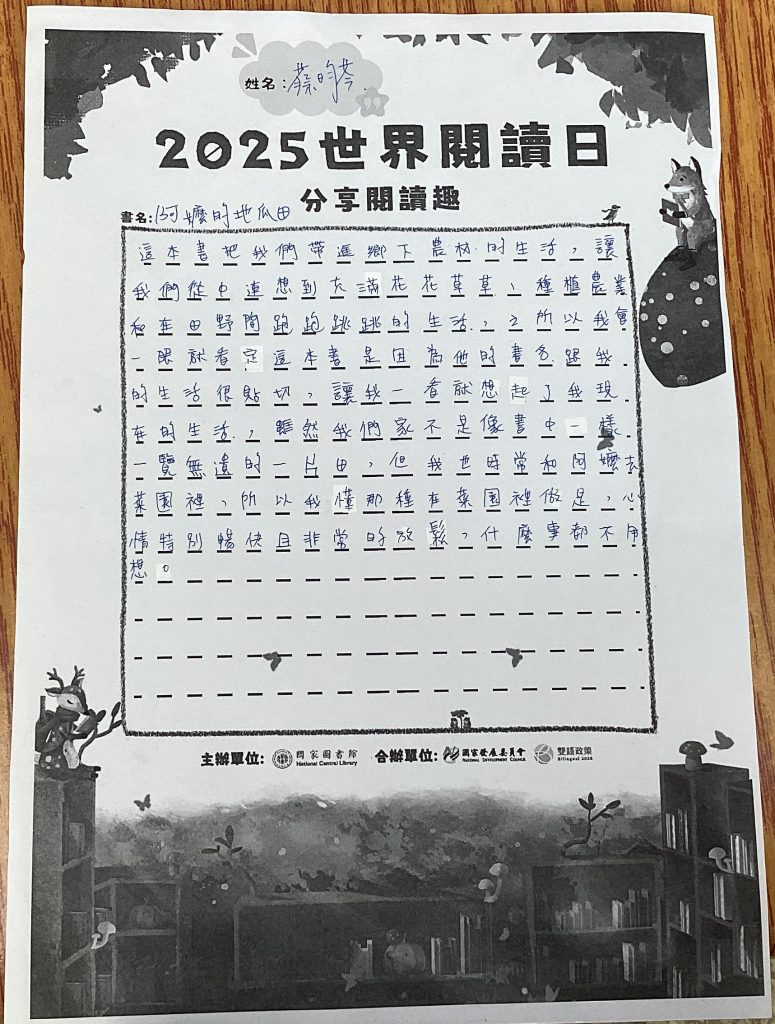 姓名：蔡昀芩
2025世界閱讀日
分享閱讀趣
書名：阿嬤的地瓜田
這本書把我們帶進鄉下農村的生活，讓
我們從中連想到充滿花花草草、種植農業
和在田野間跑跑跳跳的生活，之所以我會
一眼就看定這本書是因為他的書名跟我
的生活很貼切，讓我一看就想起了我現
在的生活，雖然我們家不是像書中一樣
一覽無遺的一片田，但我也時常和阿嬤去
菜園裡，所以我懂那種在菜園裡做是，心
情特別暢快且非常的放鬆，什麼事都不用
想。
主辦單位: 國家圖書館 National Central Library 合辦單位: 國家發展委員會 NATIONAL DEVELOPMENT COUNCIL 雙語政策 Bilingual 2030